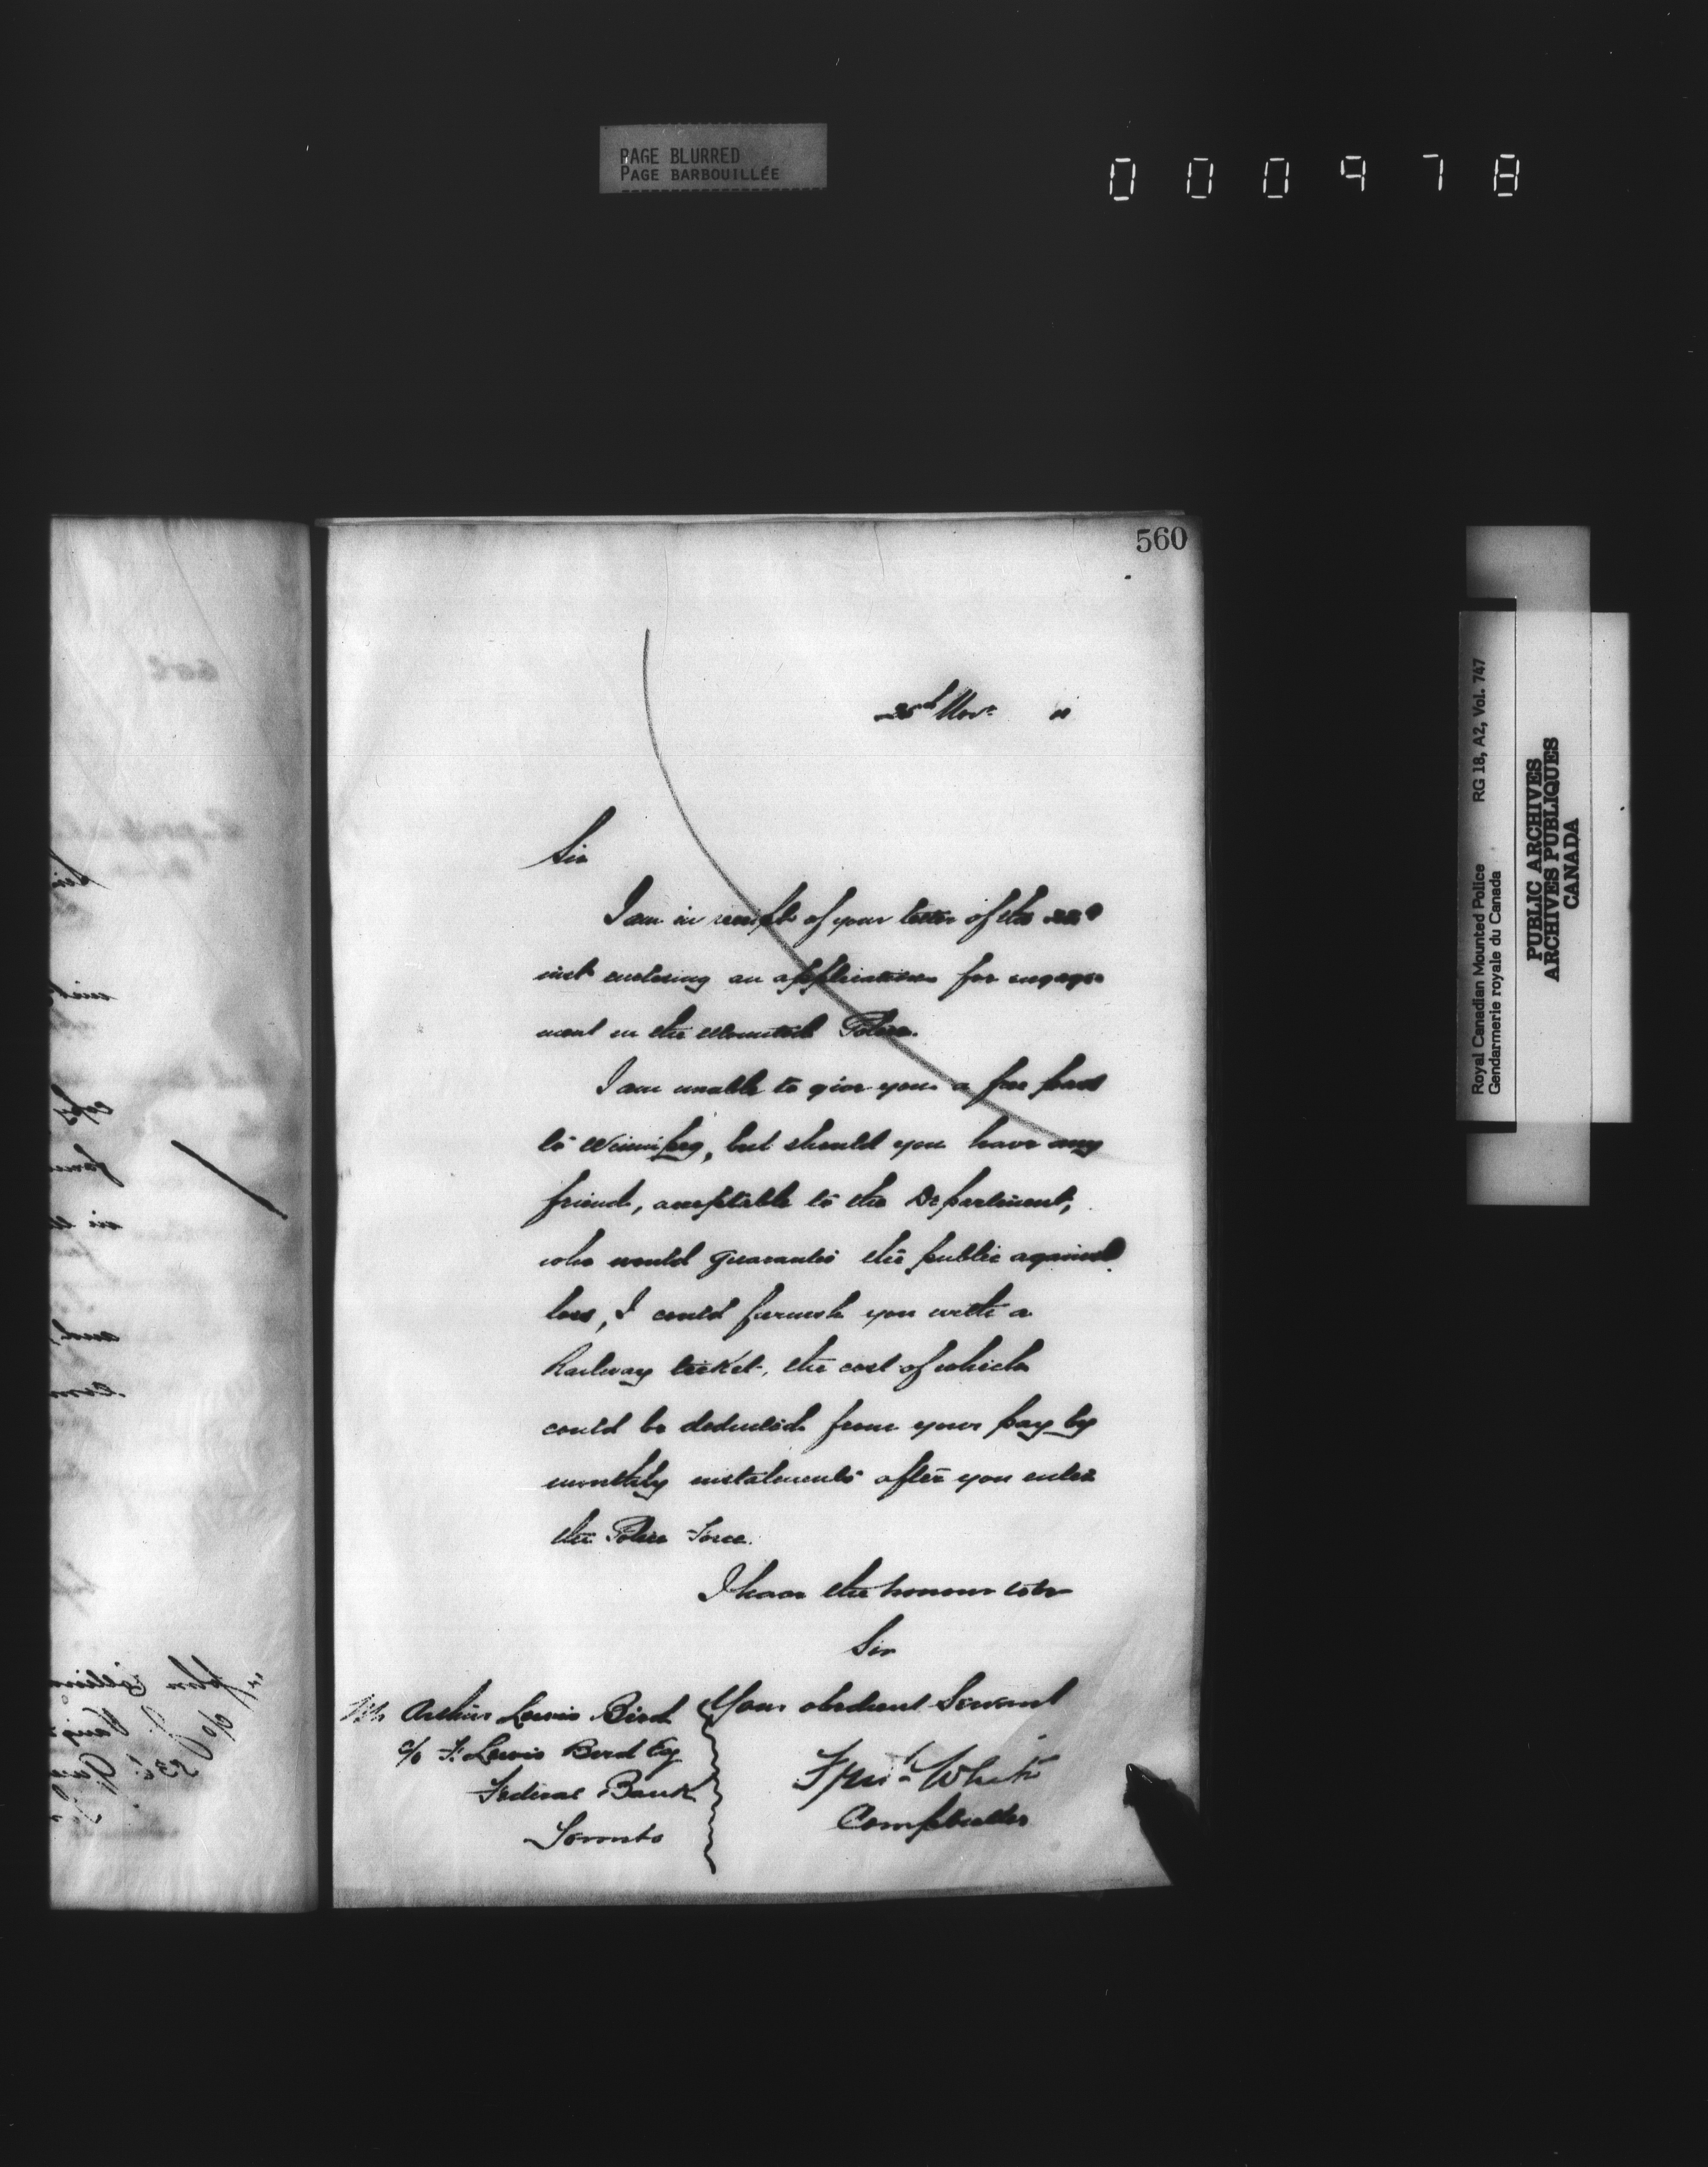 PAGE BLURRED
PAGE BARBOUILLÉE
000978
560
Nov.
Sir
I am in receipt of your letter of the
inst enclosing an application for engage
ment in the Mounted Police.
I am unable to give you a free pass
to Winnipeg, but should you have any
friend, acceptable to the Department,
who would guarantee the public against
loss, I could furnish you with a
Railway ticket, the cost of which
could be deducted from your pay by
monthly instalments after you enter
the Police Force.
I have the honour to be
Sir
Your obedient Servant
Fred White
Comptroller
Mr Arthur Lewis Bird
c/o F. Lewis Bird Esq
Federal Bank
Toronto
Royal Canadian Mounted Police
Gendarmerie royale du Canada
RG 18, A2, Vol. 747
PUBLIC ARCHIVES
ARCHIVES PUBLIQUES
CANADA